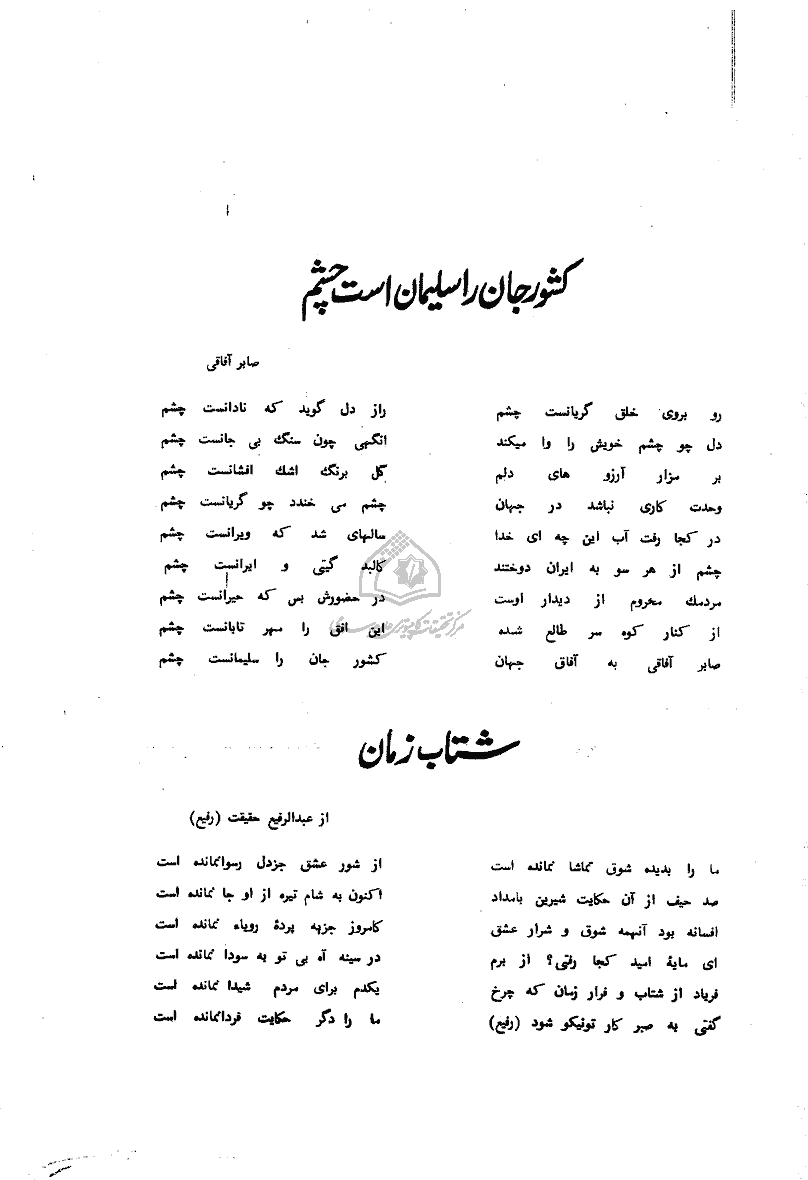 کشور جان را سلیمان است چشم
صابر آفاقی
رو بروی خلق گریانست چشم راز دل گوید که نادانست چشم
دل چو چشم خویش را وا میکند انگهی چون سنگ بی جانست چشم
بر مزار آرزو های دلم گل برنگ اشك افشانست چشم
وحدت کاری نباشد در جهان چشم می خندد چو گریانست چشم
در کجا رفت آب این چه ای خدا سالهای شد که ویرانست چشم
چشم از هر سو به ایران دوختند کالبد گیتی و ایرانست چشم
مردمك محروم از دیدار اوست در حضورش بس که حیرانست چشم
از کنار کوه سر طالع شده این افق را مهر تابانست چشم
صابر آفاقی به آفاق جهان کشور جان را سلیمانست چشم
مرکز تحقیقات کامپیوتری علوم اسلامی
شتاب زمان
از عبدالرفیع حقیقت (رفیع)
ما را بدیده شوق تماشا نمانده است از شور عشق جزدل رسوانمانده است
صد حیف از آن حکایت شیرین بامداد اکنون به شام تیره از او جا نمانده است
افسانه بود آنهمه شوق و شرار عشق کامروز جزبه پردۀ رویاء نمانده است
ای مایۀ امید کجا رفتی؟ از برم در سینه آه بی تو به سودا نمانده است
فریاد از شتاب و فرار زمان که چرخ یکدم برای مردم شیدا نمانده است
گفتی به صبر کار تونیکو شود (رفیع) ما را دگر حکایت فردانمانده است